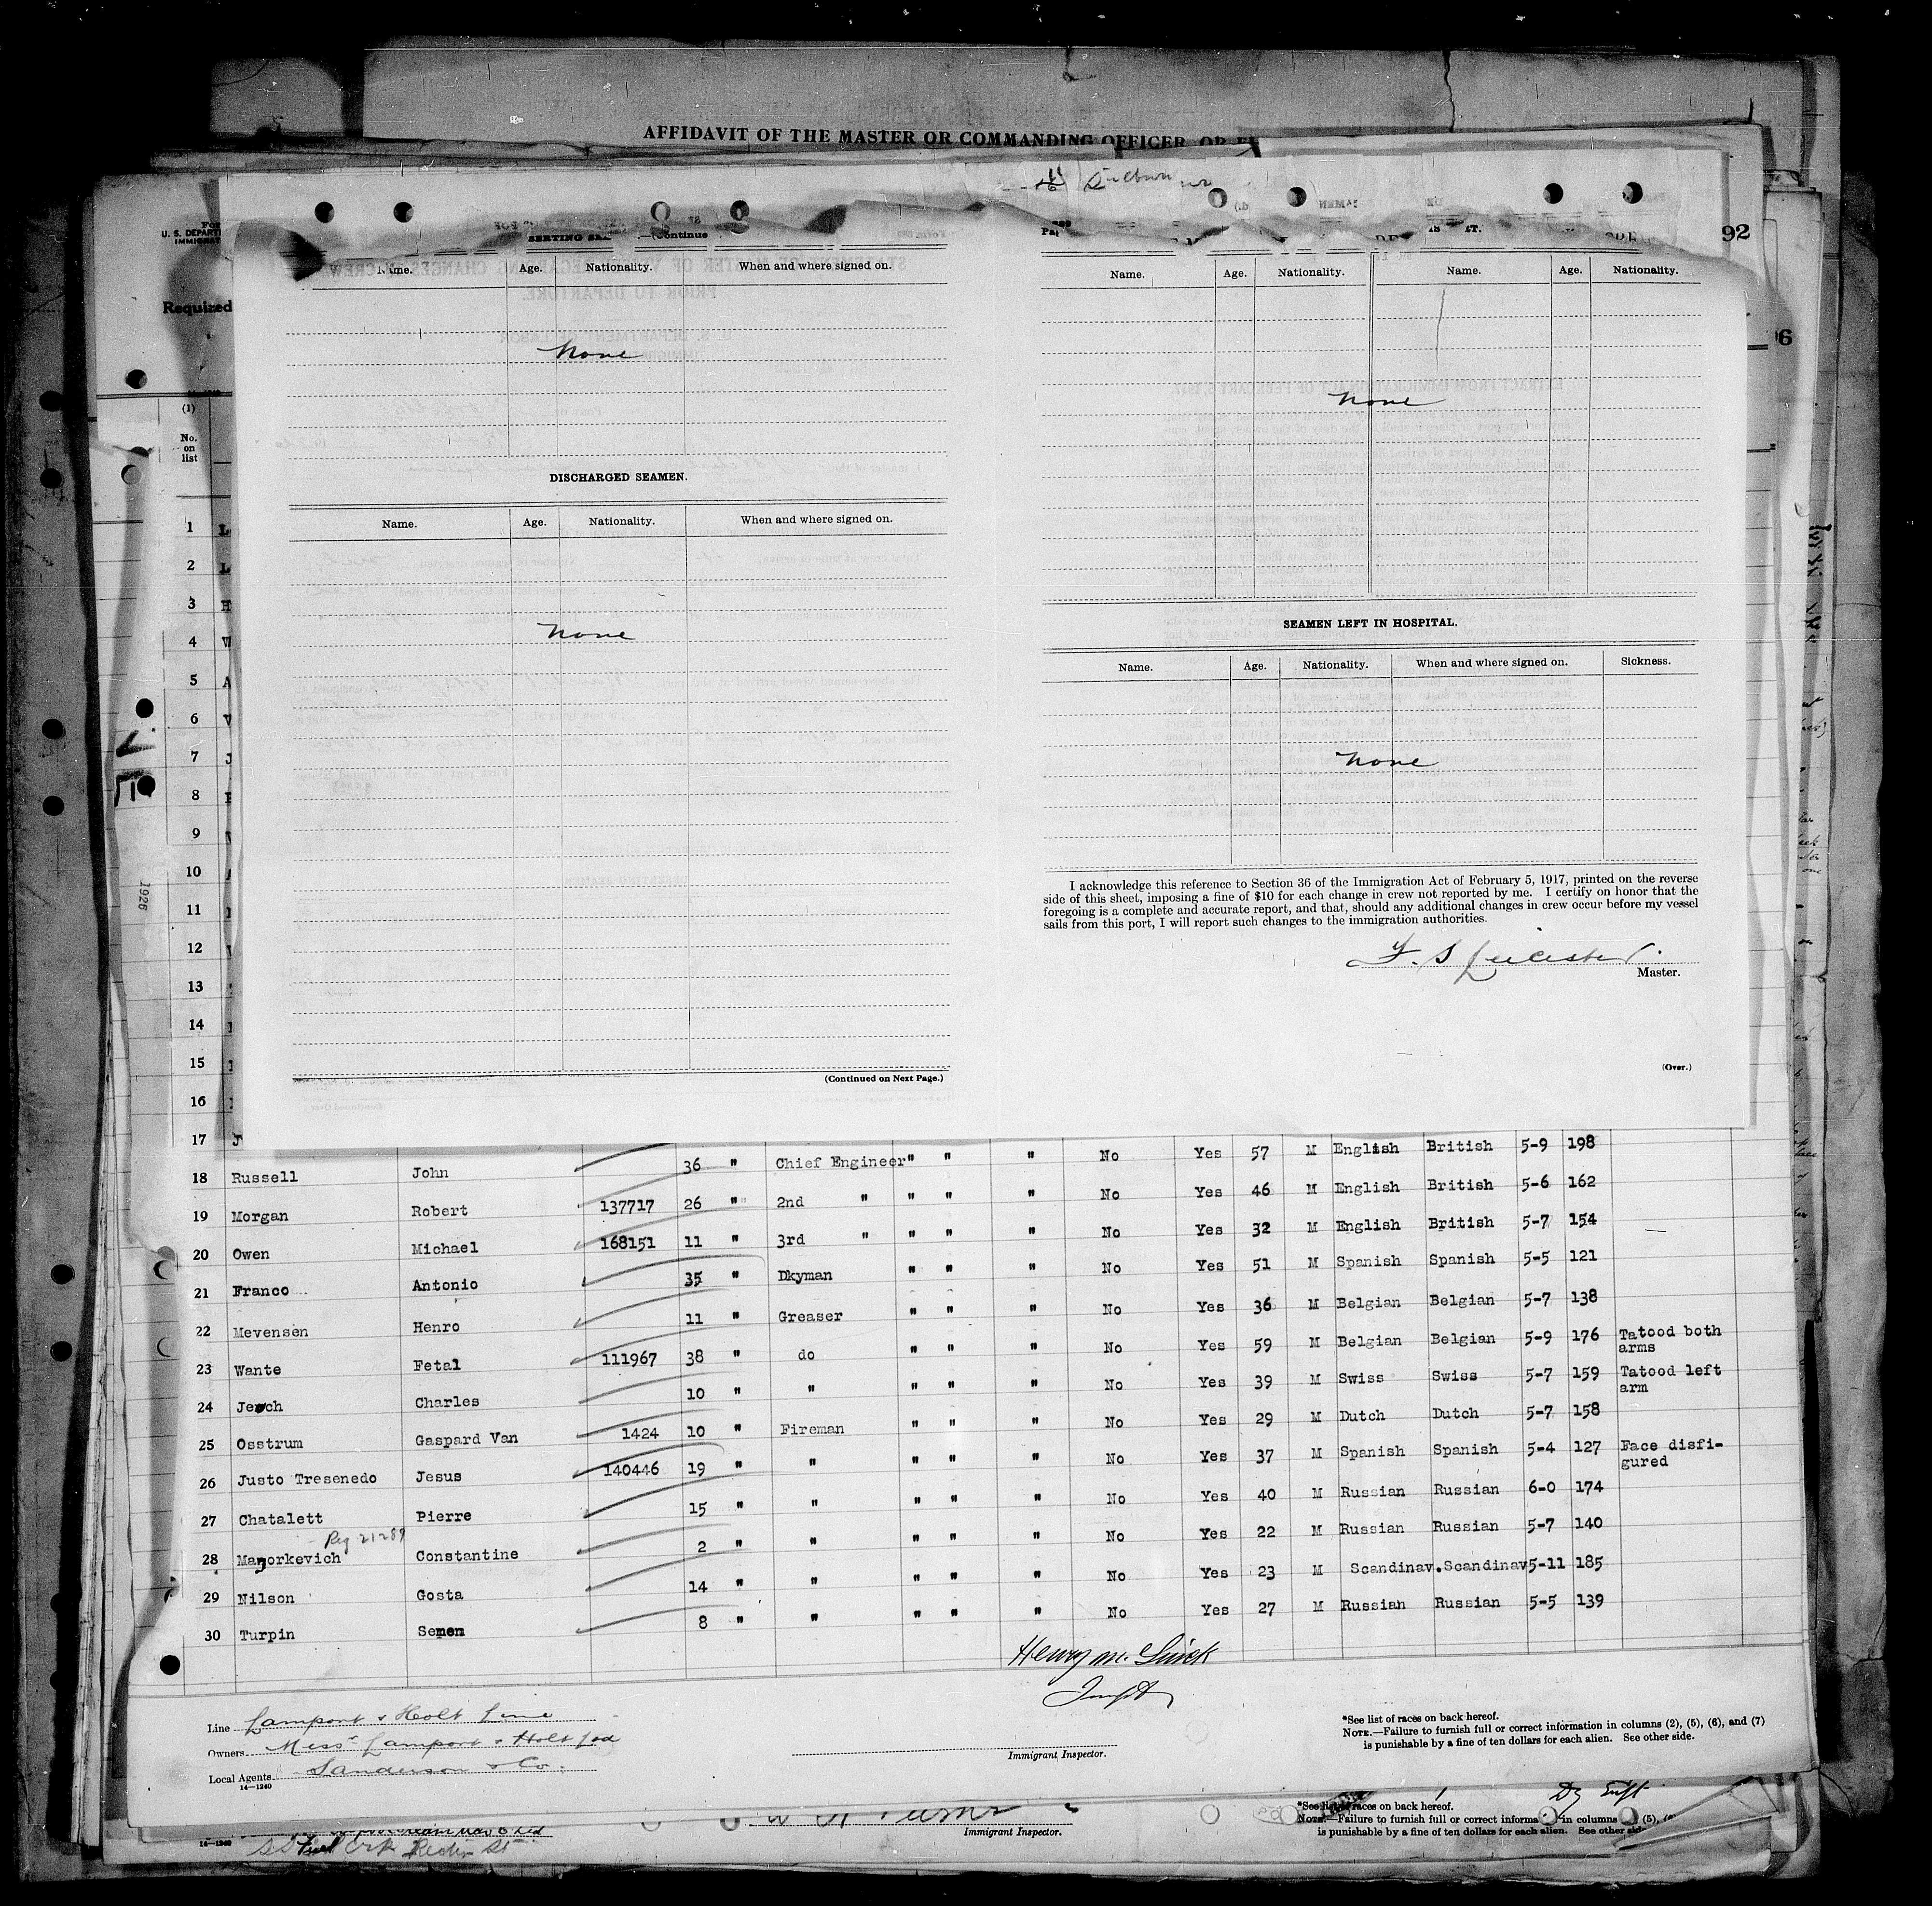 AFFIDAVIT OF THE MASTER OR COMMANDING OFFICER, OR
92
U. S. DEPART
IMMIGRAT
Required
96
(1)
No.
on
list
Name. Age. Nationality. When and where signed on.
None
DISCHARGED SEAMEN.
Name. Age. Nationality. When and where signed on.
None
(Continued on Next Page.)
Name. Age. Nationality. Name. Age. Nationality.
None
SEAMEN LEFT IN HOSPITAL.
Name. Age. Nationality. When and where signed on. Sickness.
None
I acknowledge this reference to Section 36 of the Immigration Act of February 5, 1917, printed on the reverse
side of this sheet, imposing a fine of $10 for each change in crew not reported by me. I certify on honor that the
foregoing is a complete and accurate report, and that, should any additional changes in crew occur before my vessel
sails from this port, I will report such changes to the immigration authorities.
F. S Leicester
Master.
(Over.)
1926
1
2
3
4
5
6
7
8
9
10
11
12
13
14
15
16
17
18 Russell John 36 " Chief Engineer " " " No Yes 57 M English British 5-9 198
19 Morgan Robert 137717 26 " 2nd " " " " No Yes 46 M English British 5-6 162
20 Owen Michael 168151 11 " 3rd " " " " No Yes 32 M English British 5-7 154
21 Franco Antonio 35 " Dkyman " " " No Yes 51 M Spanish Spanish 5-5 121
22 Mevensen Henro 11 " Greaser " " " No Yes 36 M Belgian Belgian 5-7 138
23 Wante Fetal 111967 38 " do " " " No Yes 59 M Belgian Belgian 5-9 176 Tatood both
arms
24 Charles 10 " " " " " No Yes 39 M Swiss Swiss 5-7 159 Tatood left
arm
25 Osstrum Gaspard Van 1424 10 " Fireman " " " No Yes 29 M Dutch Dutch 5-7 158
26 Justo Tresenedo Jesus 140446 19 " " " " " No Yes 37 M Spanish Spanish 5-4 127 Face disfi-
gured
27 Chatalett Pierre 15 " " " " " No Yes 40 M Russian Russian 6-0 174
Reg 21289
28 Manorkevich Constantine 2 " " " " " No Yes 22 M Russian Russian 5-7 140
29 Nilson Gosta 14 " " " " " No Yes 23 M Scandinav. Scandinav 5-11 185
30 Turpin Semen 8 " " " " " No Yes 27 M Russian Russian 5-5 139
Line Lamport & Holt Line
Owners Messrs Lamport & Holt Ltd
Local Agents Sanderson & Co.
14—1240
Immigrant Inspector.
*See list of races on back hereof.
NOTE.—Failure to furnish full or correct information in columns (2), (5), (6), and (7)
is punishable by a fine of ten dollars for each alien. See other side.
14—1240
Immigrant Inspector.
*See list of races on back hereof.
NOTE.—Failure to furnish full or correct informa in columns (5),
is punishable by a fine of ten dollars for each alien. See other side